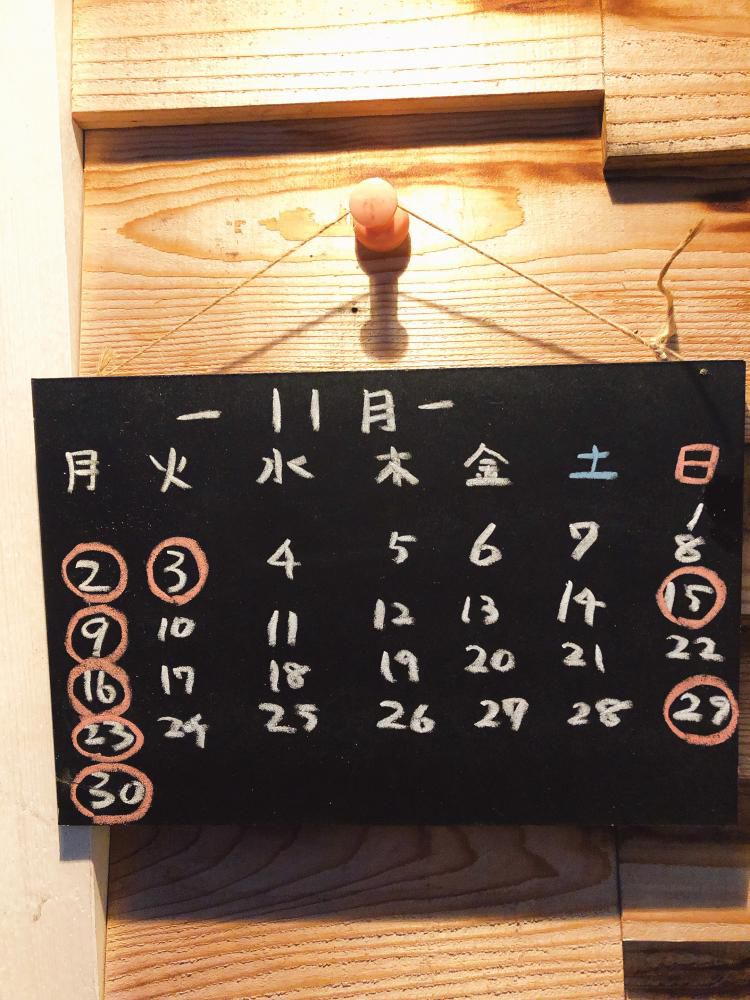 ー 11月 ー
月 火 水 木 金 土 日
1
2 3 4 5 6 7 8
9 10 11 12 13 14 15
16 17 18 19 20 21 22
23 24 25 26 27 28 29
30